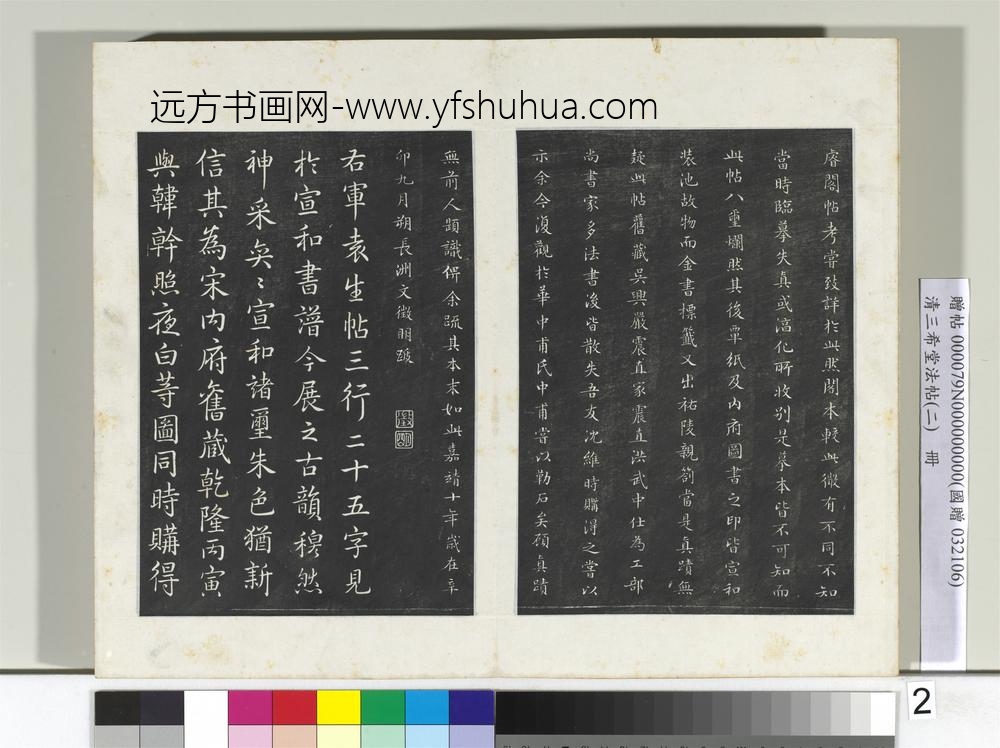 远方书画网-www.yfshuhua.com
睿閣帖考嘗致詳於此然閣本較此微有不同不知
當時臨摹失真或淳化所收别是摹本皆不可知而
此帖八璽爛然其後覃紙及内府圖書之印皆宣和
裝池故物而金書標籤又出祐陵親劄當是真蹟無
疑此帖舊藏吳興嚴震直家震直洪武中仕為工部
尚書家多法書後皆散失吾友沈維時購得之嘗以
示余今復觀於華中甫氏中甫嘗以勒石矣顧真蹟
無前人題識俾余疏其本末如此嘉靖十年歲在辛
卯九月朔長洲文徵明跋
徵
明
右軍袁生帖三行二十五字見
於宣和書譜今展之古韻穆然
神采奕〻宣和諸璽朱色猶新
信其為宋内府舊藏乾隆丙寅
與韓幹照夜白等圖同時購得
贈帖 000079N000000000(國贈 032106)
清三希堂法帖(二) 冊
2